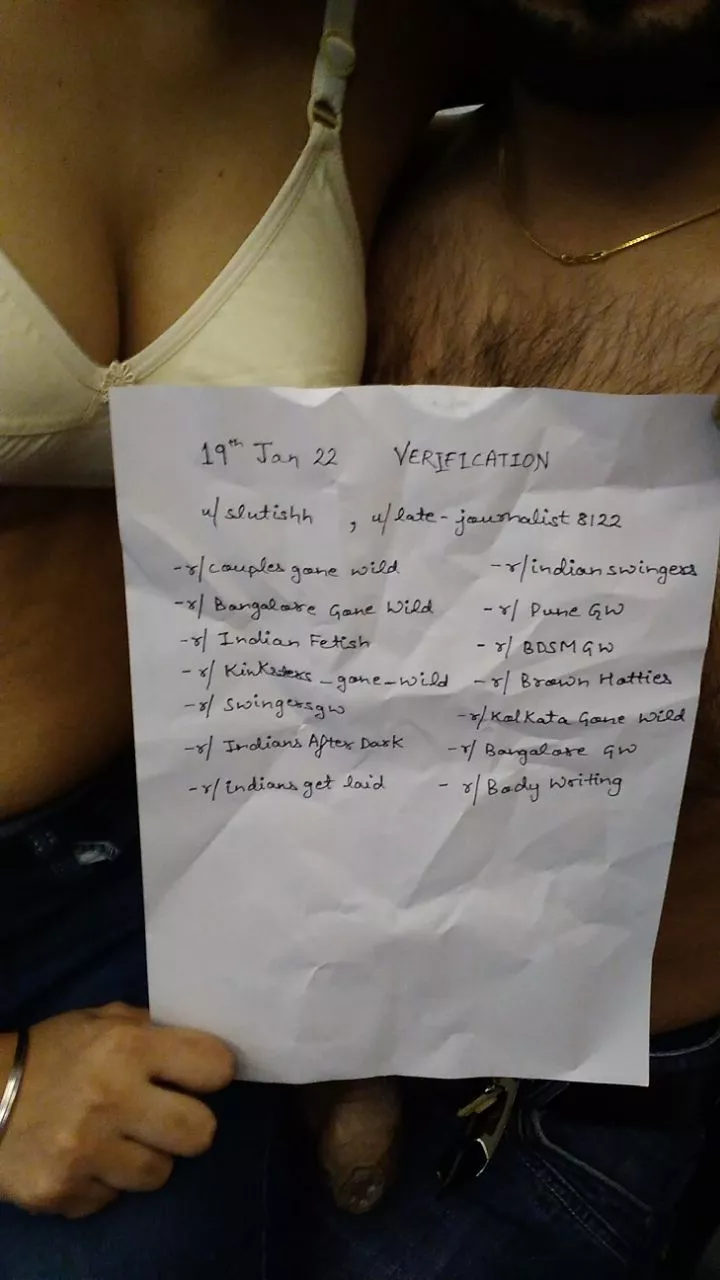 19th Jan 22 VERIFICATION
u/slutishh , u/late-journalist 8122
-r/couples gone wild -r/indian swingers
-r/ Bangalore Gone Wild -r/ Pune GW
-r/ Indian Fetish - r/ BDSM GW
-r/ Kinksters_gone_wild -r/ Brown Hotties
-r/ Swingersgw -r/Kolkata Gone Wild
-r/ Indians After Dark -r/ Bangalore GW
-r/ indians get laid - r/ Body Writing